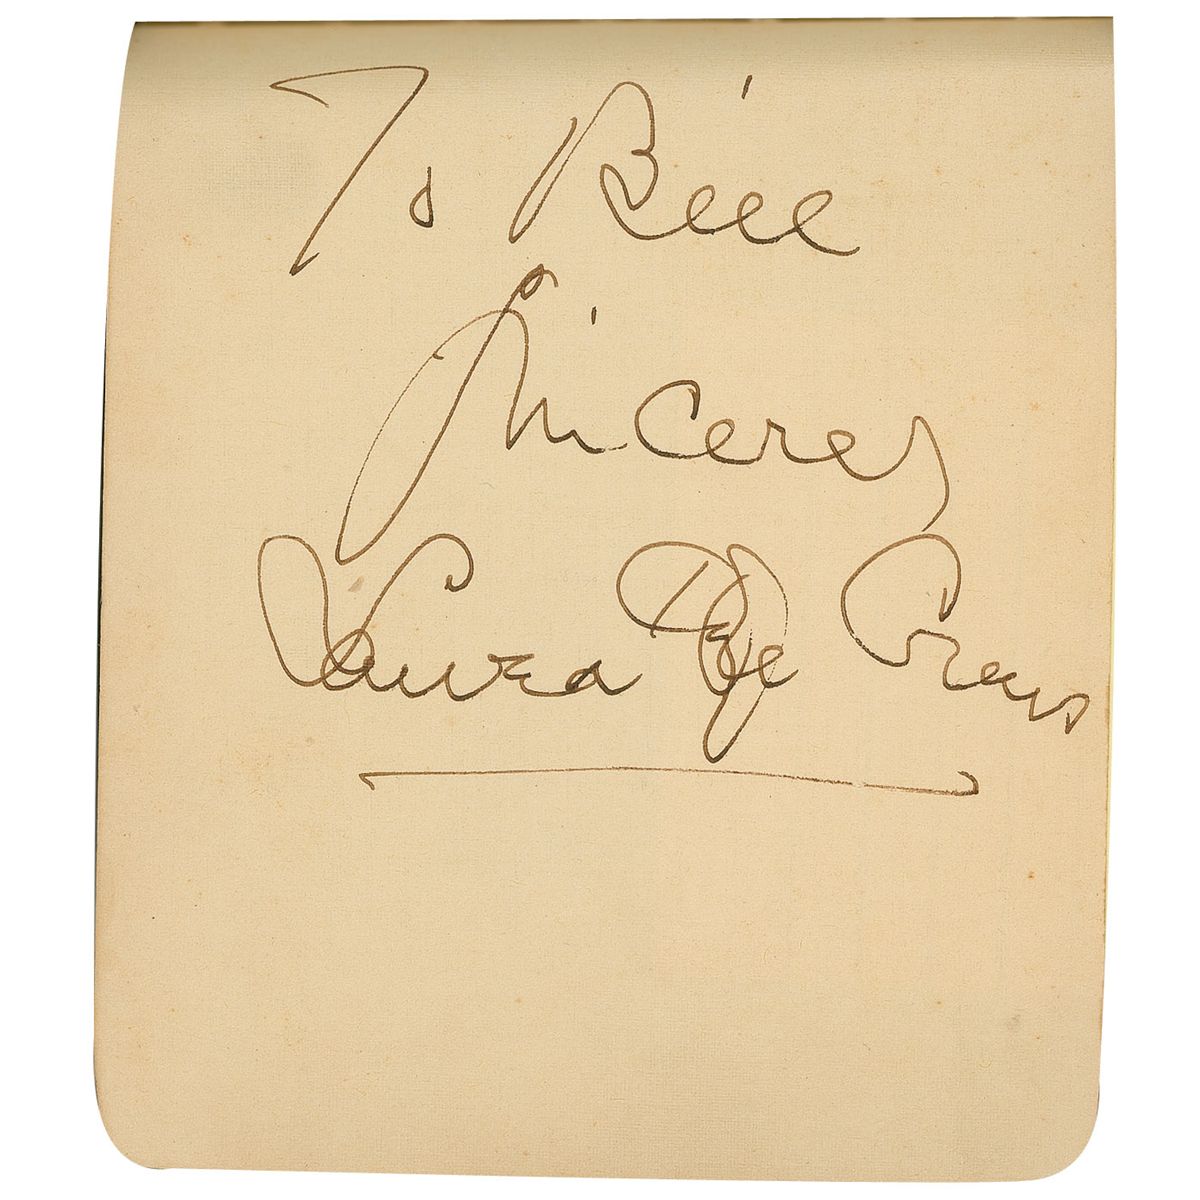 To Bill
Sincerely
Laura Hope Crews